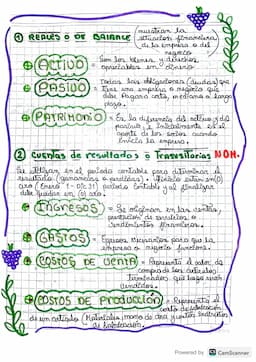 ① REALES o DE BALANCE (muestran la
situación financiera
de la empresa o del
negocio
⊕ ACTIVO = Son los bienes y derechos
apreciables en dinero
⊕ PASIVO = Todas las obligaciones (deudas) que
tiene una empresa o negocio que
debe pagar a corto, mediano o largo
plazo.
⊕ PATRIMONIO = Es la diferencia del activo y del
pasivo, e inicialmente es el
aporte de los socios cuando
inicia la empresa.
② Cuentas de resultados o Transitorias NOM.
Se utilizan en el periodo contable para determinar el
resultado (ganancias o perdidas).
año (Enero 1 - Dic 31) periodo contable y al finalizar
en (0) cero.
⊕ INGRESOS = Se originan en las ventas,
prestación de servicios o
rendimientos financieros.
⊕ GASTOS = Egresos necesarios para que la
empresa o negocio funcione.
⊕ COSTOS DE VENTA = Representa el valor de
compra de los artículos
terminados que luego serán
vendidos.
⊕ COSTOS DE PRODUCCIÓN = Representa el
costo de fabricación
de un artículo (Materiales, mano de obra y costos indirectos
de fabricación.
Powered by CS CamScanner